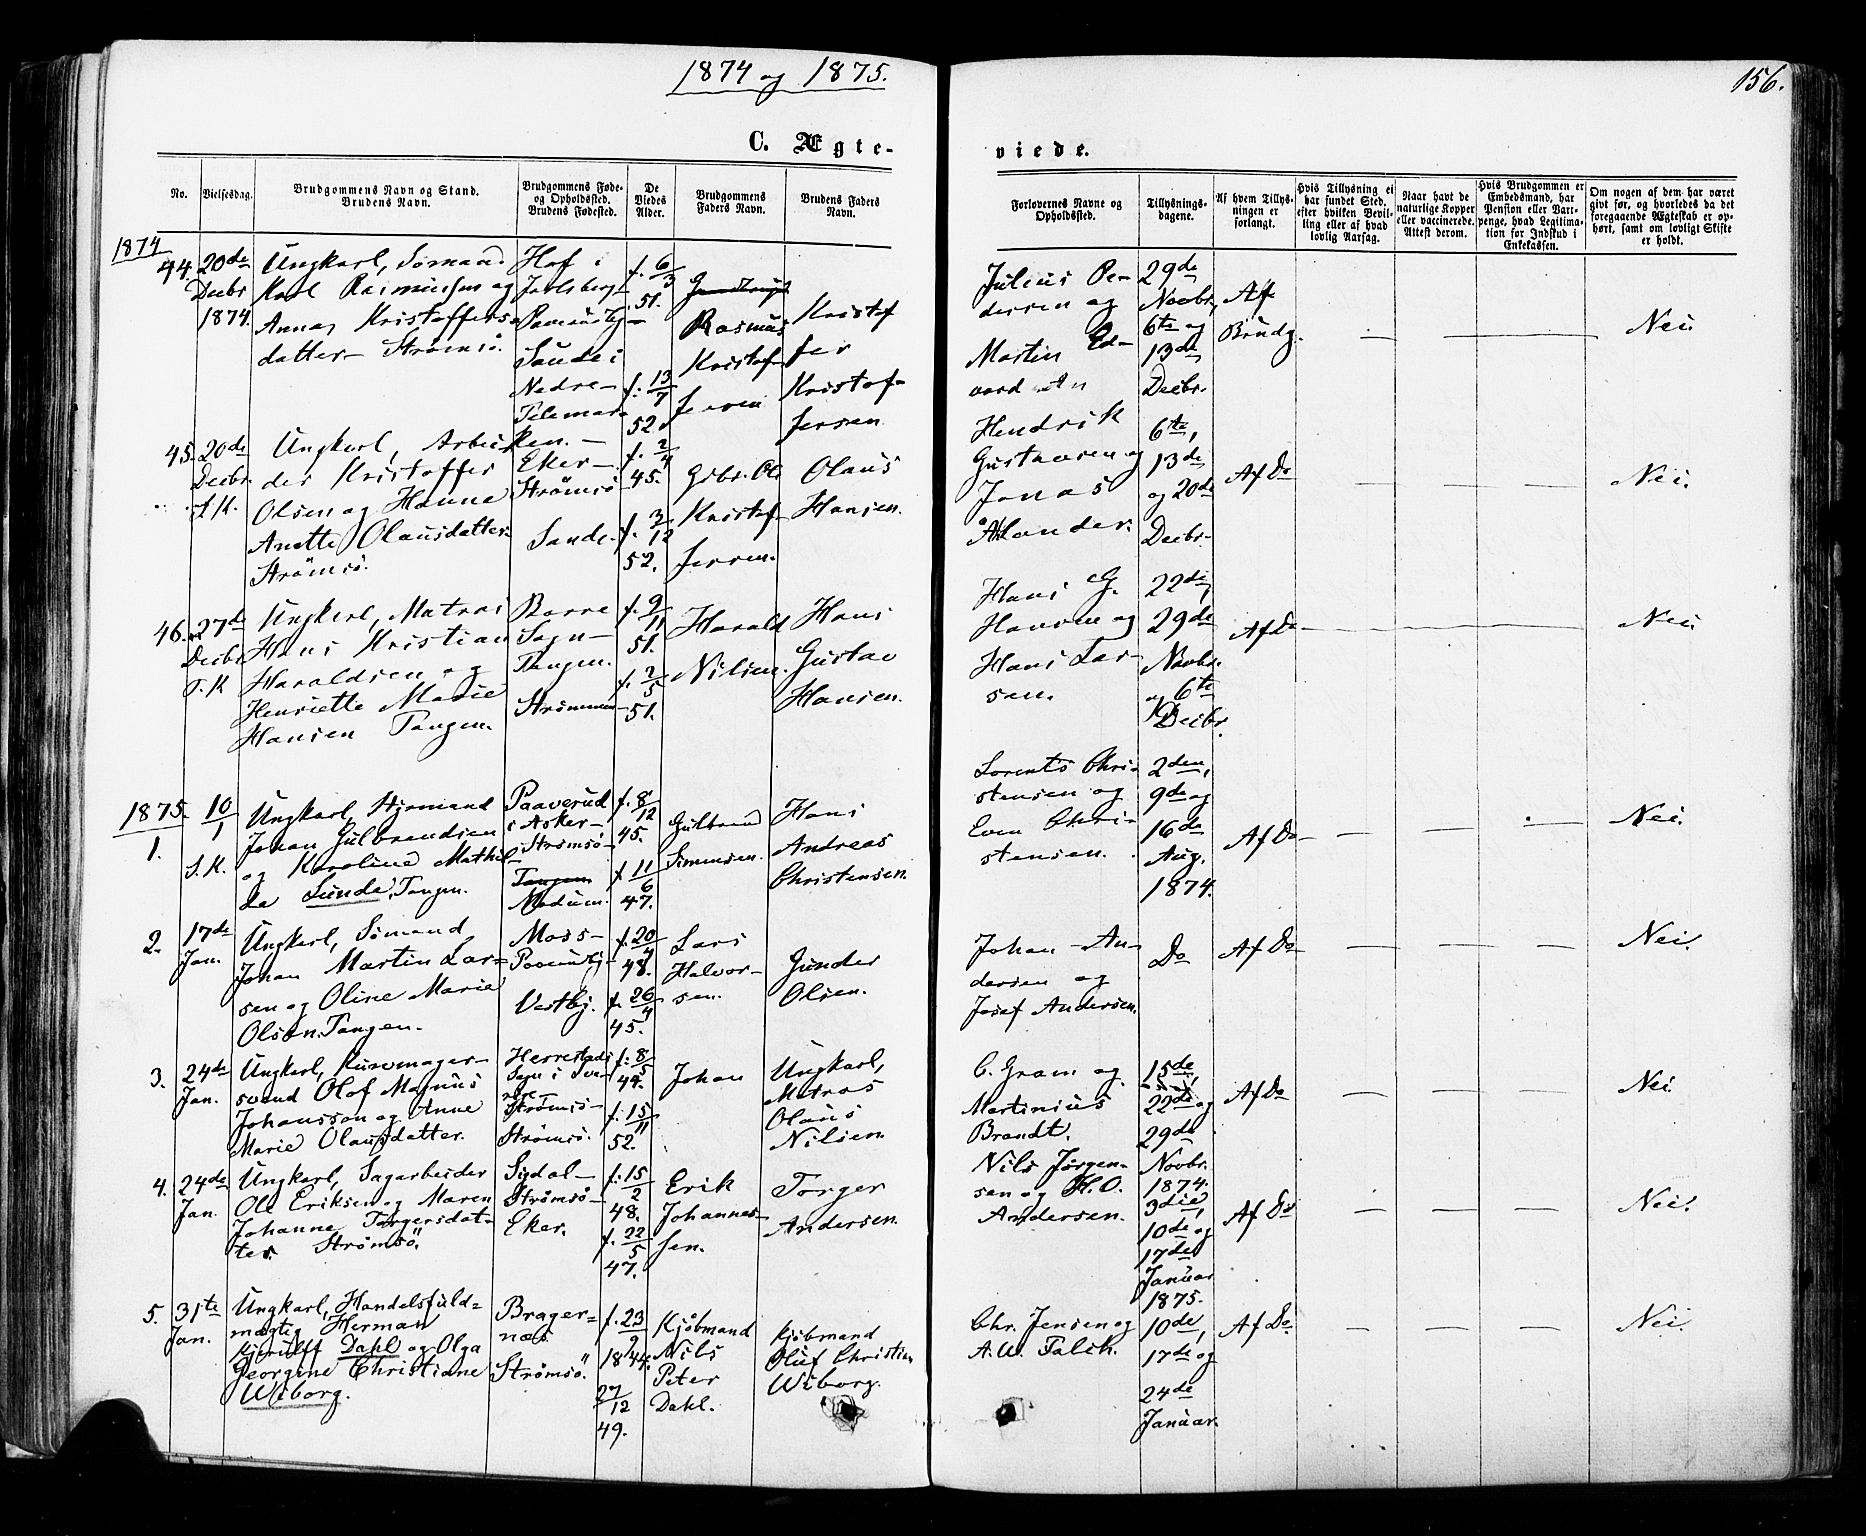 1874 og 1875.
156.
C. Ægte-
viede.
No.
Vielsesdag.
Brudgommens Navn og Stand.
Brudens Navn.
Brudgommens Føde-
og Opholdsted.
Brudens Fødested.
De
Viedes
Alder.
Brudgommens
Faders Navn.
Brudens Faders
Navn.
Forlovernes Navne og
Opholdssted.
Tillysnings-
dagene.
Af hvem Tillys-
ningen er
forlangt.
Hvis Tillysning ei
har fundet Sted,
efter hvilken Bevil-
ling eller af hvad
lovlig Aarsag.
Naar havt de
naturlige Kopper
eller vaccinerede.
Attest derom.
Hvis Brudgommen er
Embedsmand, har
Pension eller Vart-
penge, hvad Legitima-
tion for Indskud i
Enkekassen.
Om nogen af dem har været
givt før, og hvorledes da det
foregaaende Ægteskab er op-
hørt, samt om lovligt Skifte
er holdt.
1874
44.
20de
Decbr
1874.
Ungkarl, Sømand
Karl Rasmussen og
Anna Kristoffers-
datter – Strømsö.
Hof i
Jarlsberg –
Sande i
Nedre –
Telemar-
ken. –
f. 6/3
51.
f. 13/7
52.
Rasmus
Kristof-
fersen
Kristof
fer
Kristof-
fersen
Julius Pe-
dersen og
Martin Ed-
vard
29de
Novbr,
6te og
13de
Decbr.
Af
Brudg.
—
—
—
Nei.
45.
20de
Decbr.
Ungkarl, Arbei-
der Kristoffer
Olsen og Hanne
Anette Olausdatter
Strömsö.
Eker –
Strømsö –
Sande.
f. 2/4
45.
f. 3/12
52.
Kristof-
fersen.
Olaus
Hansen.
Hendrik
Gustavsen og
Jonas
6te,
13de
og 20de
Decbr.
Af Do
—
—
—
Nei.
46.
27de
Decbr
T. K
Ungkarl, Matros
Hans Kristian
Haraldsen og
Henriette Marie
Hansen Tangen.
Borre
Sogn –
Tangen.
Strømmen
f. 9/11
51.
f. 2/5
51.
Harald
Nilsen.
Hans
Gustav
Hansen.
Hans G.
Hansen og
Hans Lar-
sen.
22de,
29de
Novbr.
og 6te
Decbr.
Af Do
—
—
—
Nei
1875.
1.
10/1
S. K.
Ungkarl, Styrmand
Johan Gulbrandsen
og Karoline Mathil-
de Lunde, Tangen.
Paaverud
i Asker –
Strømsö –
Tangen
Modum.
f. 8/12
45.
f. 11/6
47.
Gulbrand
Simensen.
Hans
Andreas
Christensen.
Lorents Chri-
stensen og
Even Chri-
stensen.
2den,
9de og
16de
Aug.
1874.
Af Do
—
—
—
Nei.
2.
17de
Jan.
Ungkarl, Sømand
Johan Martin Lar-
sen og Oline Marie
Olsen. Tangen.
Moss –
Vestby.
f. 20/4
48.
f. 26/4
45.
Lars
Halvor-
sen.
Gunder
Olsen.
Johan An-
dersen og
Josef Andersen.
Do
Af Do
—
—
—
Nei.
3.
24de
Jan.
Ungkarl, Kurvmager-
svend Olof Magnus
Johansson og Anne
Marie Olausdatter.
Herrestads
Sogn i Sve-
rige –
Strømsö –
Strömsö.
f. 8/5
49.
f. 15/11
52.
Johan
Ungkarl,
Matros
Olaus
Nilsen.
C. Gram og
Martinius
Brandt.
15de,
22de og
29de
Novbr.
1874.
Af Do
—
—
—
Nei.
4.
24de
Jan.
Ungkarl, Sagarbeider
Ole Eriksen og Maren
Johanne Torgersdat-
ter. Strömsö.
Sigdal –
Strømsö –
Eker.
f. 15/2
48.
f. 22/5
47.
Erik
Johannes-
sen.
Torger
Andersen.
Nils Jørgen-
sen og H. O.
Andersen.
3die,
10de og
17de
Januar
1875.
Af Do
—
—
—
Nei.
5.
31te
Jan.
Ungkarl, Handelsfuld-
mægtig Herman
Kjerulff Dahl og Olga
Georgine Christiane
Wiborg.
Brager-
næs.
Strømsö.
f. 23/9
1844.
27/12
49.
Kjöbmand
Nils
Peter
Dahl.
Kjöbmand
Oluf Christian
Wiborg.
Chr. Jensen og
A. W. Falch.
10de,
17de og
24de
Januar.
Af Do.
—
—
—
Nei.